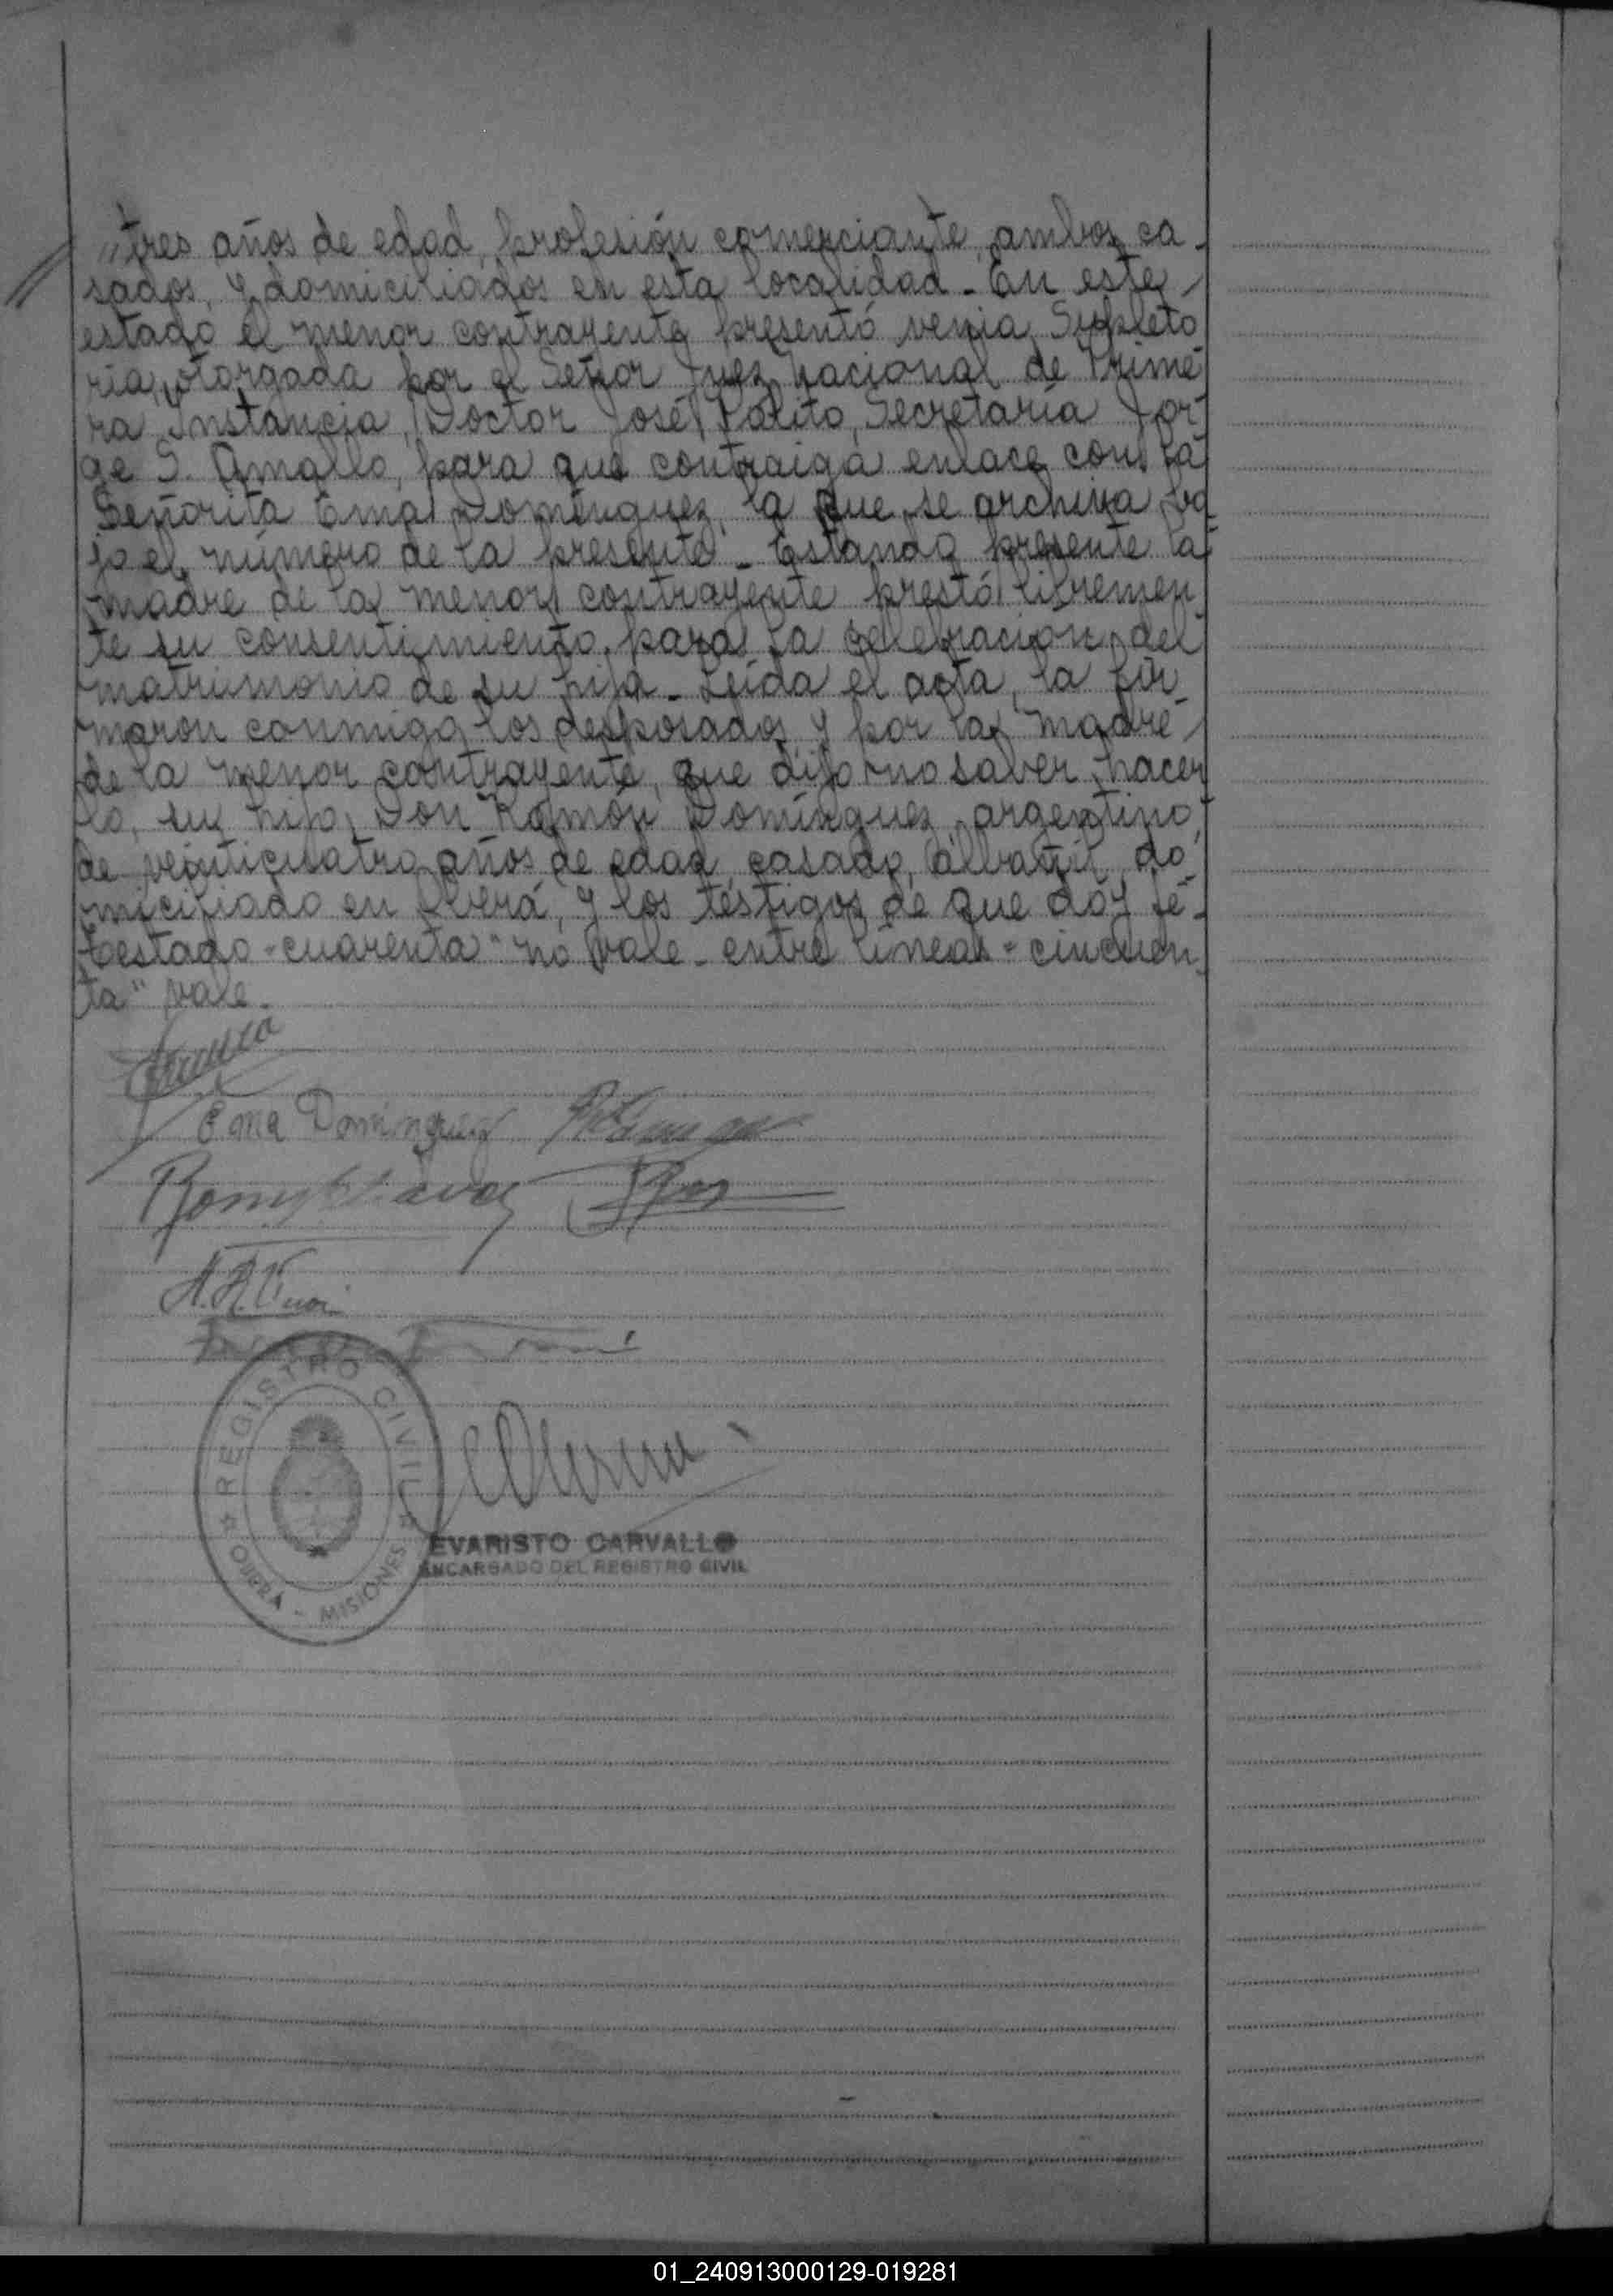 „tres años de edad, profesión comerciante, ambos ca-
sados, y domiciliados en esta localidad - En este
estado el menor contrayente presentó venia Supleto
ria, otorgada por el Señor Juez Nacional de Prime
ra Instancia, Doctor José, Secretaría Jor
ge S. Amallo, para que contraiga enlace con la
Señorita Ema Domínguez, la que se archiva ba
jo el número de la presente - Estando presente la
madre de la menor contrayente prestó libremen
te su consentimiento para la celebración del
matrimonio de su hija - Leída el acta, la fir
maron conmigo los desposados y por la madre
de la menor contrayente, que dijo no saber hacer
lo, su hijo, Don Ramón Domínguez, argentino,
de veinticuatro años de edad, casado, albañil, do
miciliado en Oberá, y los testigos de que doy fé-
Testado "cuarenta" no vale - entre líneas "cincuen
ta" vale.
Ema Dominguez
REGISTRO CIVIL
OBERA - MISIONES
EVARISTO CARVALLO
ENCARGADO DEL REGISTRO CIVIL
01_240913000129-019281